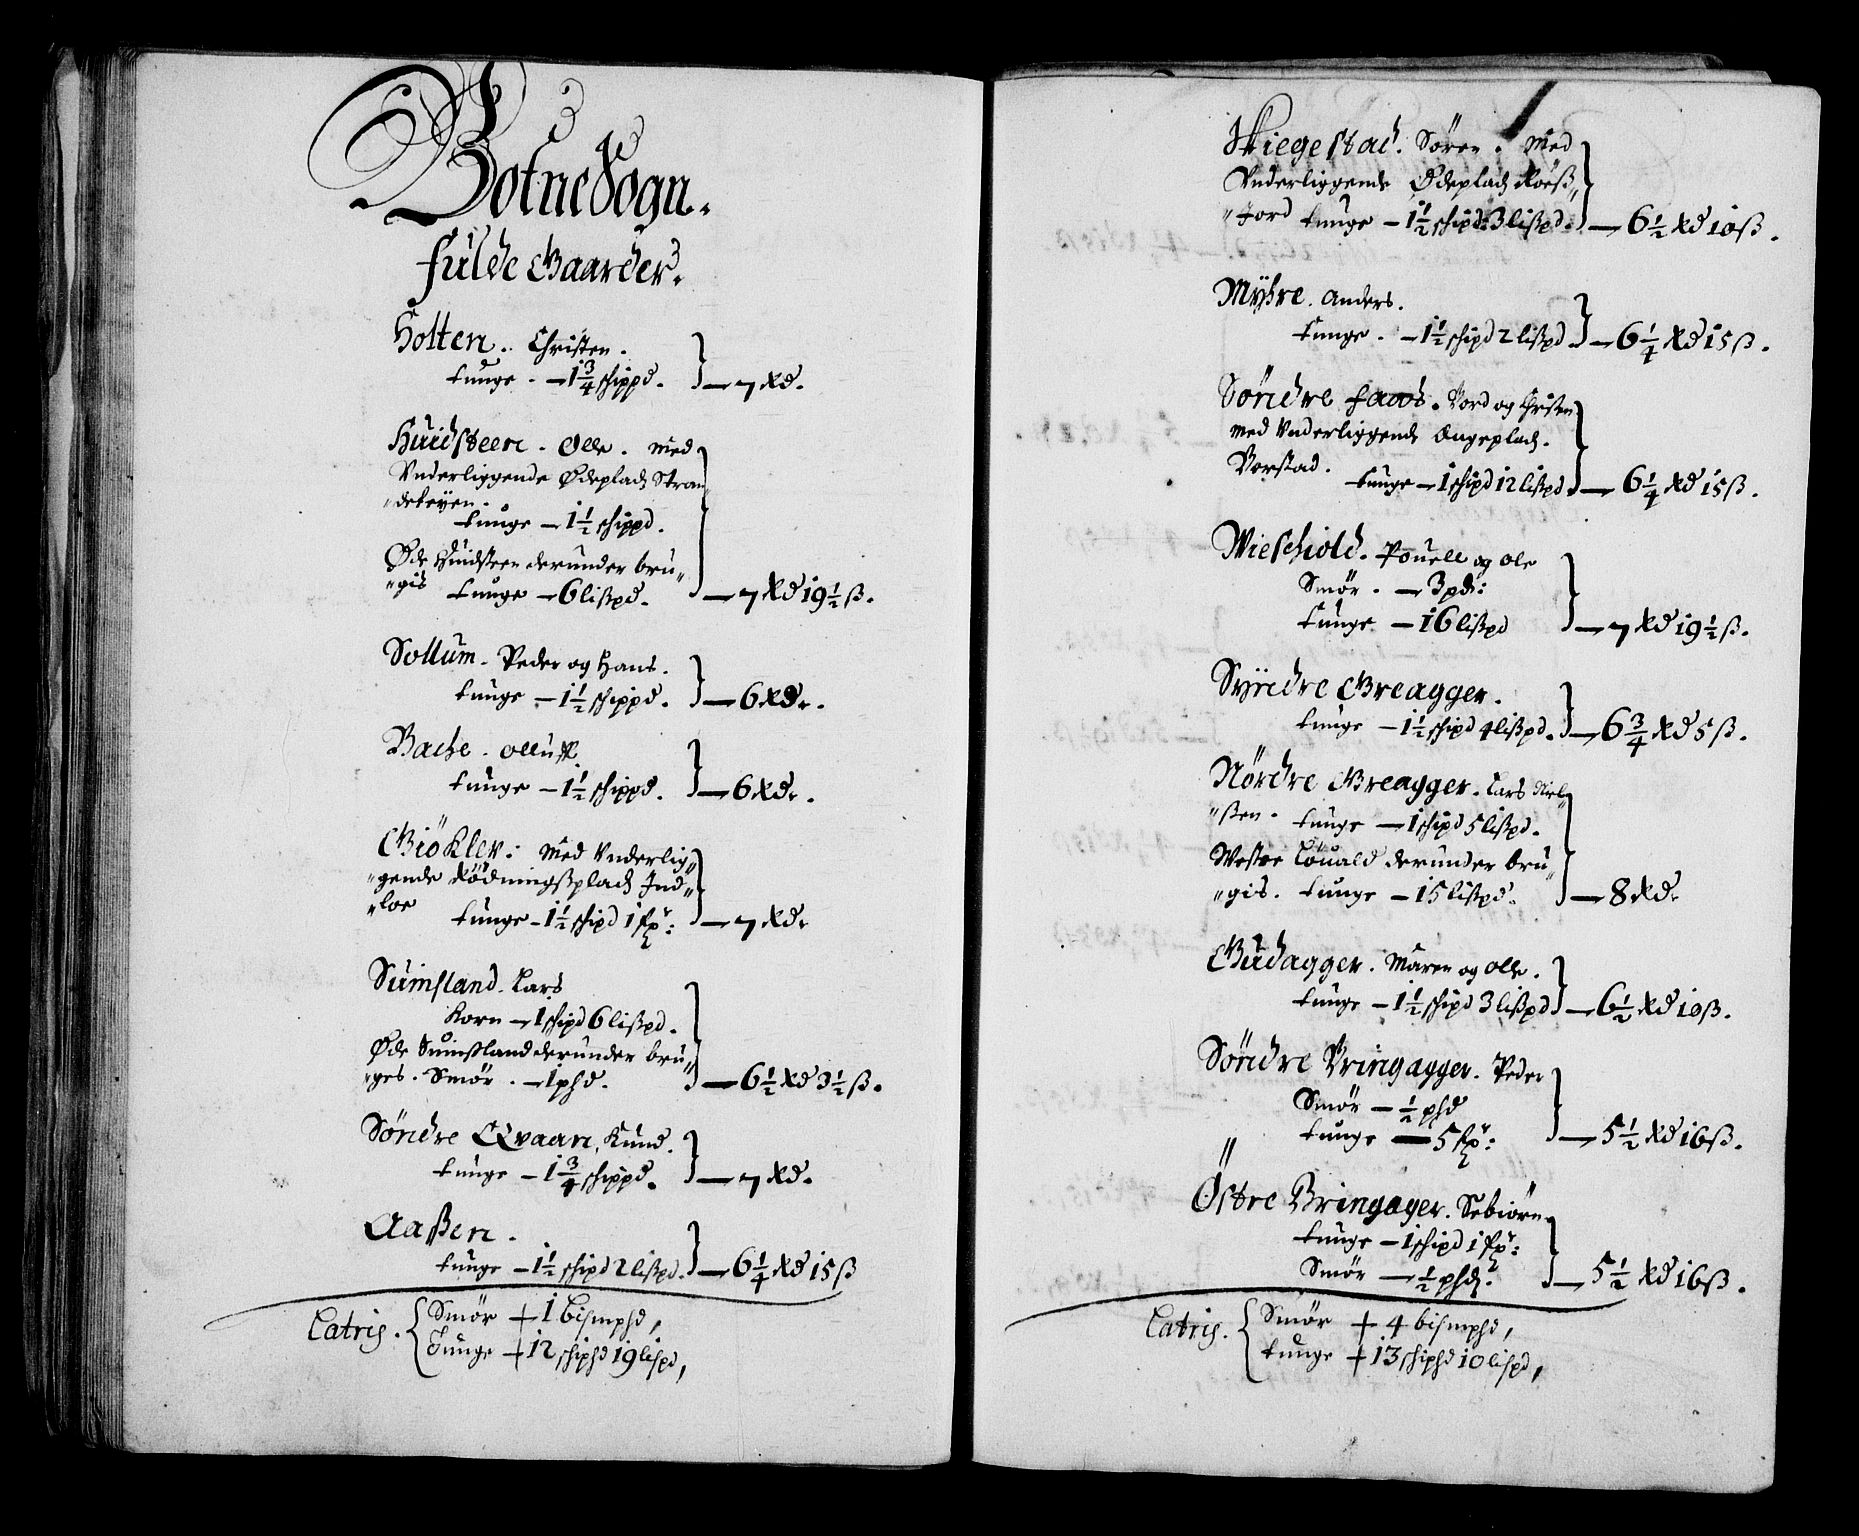 Botne Sogn.
fulde Gaarder.
Holten. Christen.
tunge. — 1 3/4 schippd. — 7 Rd.
Huidsteen. Olle. med
Vnderliggende Ødeplads Stran„
„deføyen.
tunge — 1 1/2 schippd.
Øde Huidsteen derunder bru„
„gis tunge — 6 lißpd. — 7 Rd 19 1/2 ß.
Sollum. Peder og Hans.
tunge — 1 1/2 schippd. — 6 Rd.
Bache. Olluff.
tunge — 1 1/2 schippd. — 6 Rd.
Giökler: med Vnderlig„
„gende Rödningßplads Ind„
„loe tunge — 1 1/2 schipd 1 spr: — 7 Rd.
Sumsland. Lars
Korn — 1 schipd 6 lißpd.
Øde Sumsland derunder bru„
„ges. Smør. — 1 phd. — 6 1/2 Rd 3 1/2 ß.
Söndre Qvaan. Knud.
tunge — 1 3/4 schippd. — 7 Rd.
Aaßen.
tunge — 1 1/2 schipd 2 lißpd. — 6 1/4 Rd 15 ß
Latris. Smør + 1 bismphd,
Tunge + 12 schiphd 19 lispd,
Wiegestad. Sören. med
Vnderliggende Ødeplads Roeß„
„Jord tunge — 1 1/2 schipd: 3 lißpd. — 6 1/2 Rd 10 ß.
Myhre. Anders.
tunge. — 1 1/2 schipd 2 lißpd — 6 1/4 Rd 15 ß.
Söndre faaos. Bord og Christen
med Vnderliggende Engeplads.
Borstad. tunge — 1 schipd 12 lißpd — 6 1/4 Rd 15 ß.
Wieschold. Pouell og Ole
Smør. — 3 pd:
tunge — 16 lißpd — 7 Rd 19 1/2 ß.
Syndre Greagger.
tunge — 1 1/2 schipd 4 lißpd. — 6 3/4 Rd 5 ß.
Nördre Greagger. Lars Niel„
„ßen. tunge — 1 schipd 5 lißpd.
Westre Löuald derunder bru„
„gis. tunge — 15 lißpd. — 8 Rd.
Gudagger. Maren og Olle.
tunge — 1 1/2 schipd 3 lißpd — 6 1/2 Rd 10 ß.
Söndre Bringagger. Peder
Smør — 1/2 phd
tunge — 5 spr: — 5 1/2 Rd 16 ß.
Östre Bringager. Sebiörn
tunge — 1 schipd 1 spr:
Smør — 1/2 phd. — 5 1/2 Rd 16 ß.
Latris. Smør + 4 bismphd,
tunge + 13 schiphd 10 lispd,